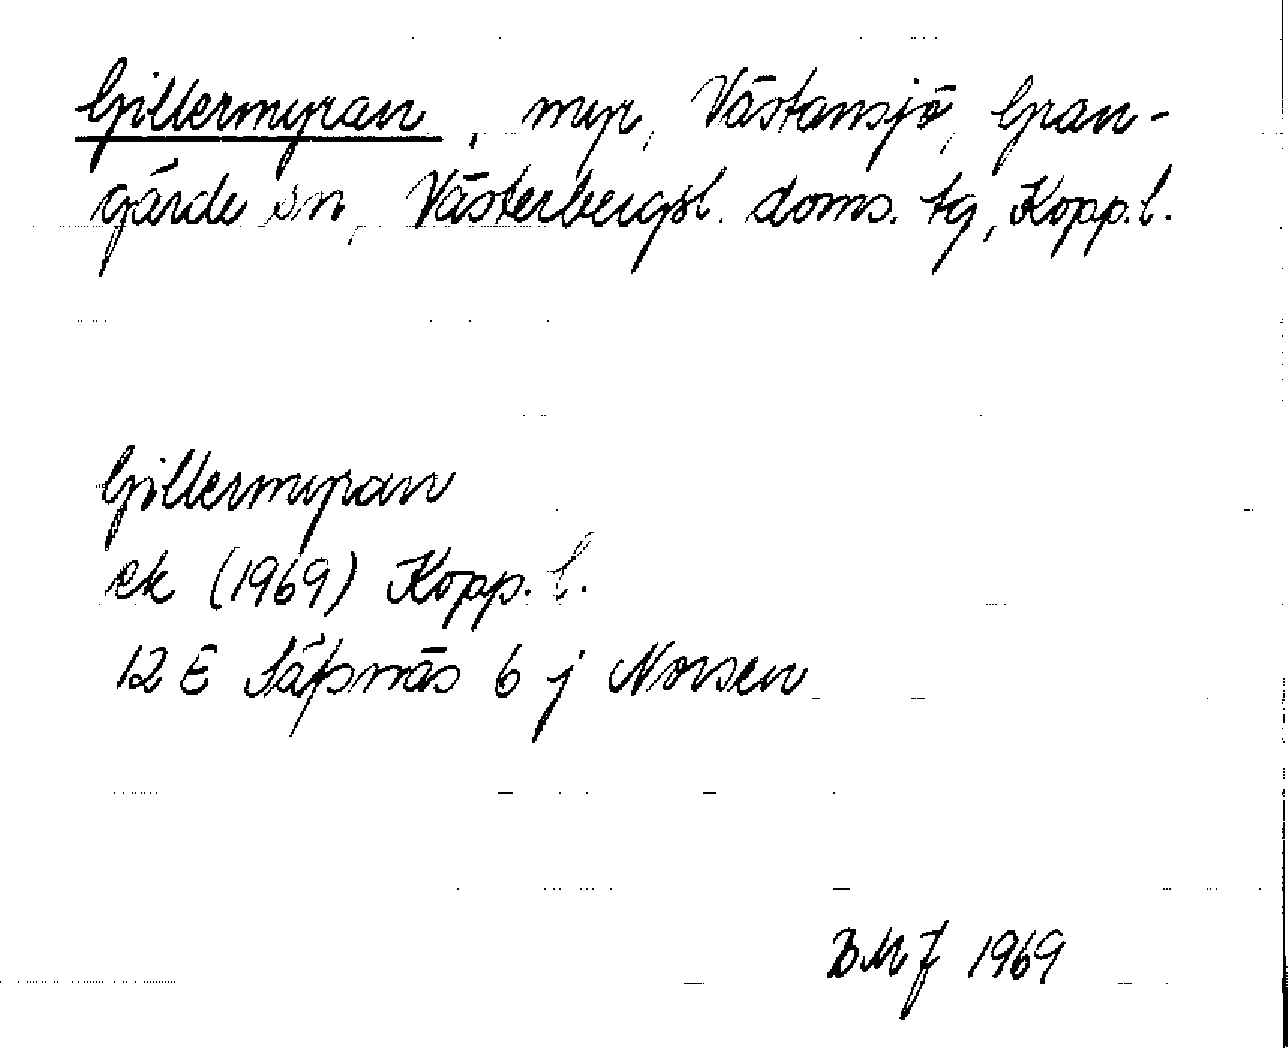 Gillermyran, myr, Västansjö, Gran-
gärde sn, Västerbergsl. doms. tg, Kopp.l.
Gillermyran
ek (1969) Kopp. l.
12 E Säfsnäs 6 j Norsen
BMJ 1969